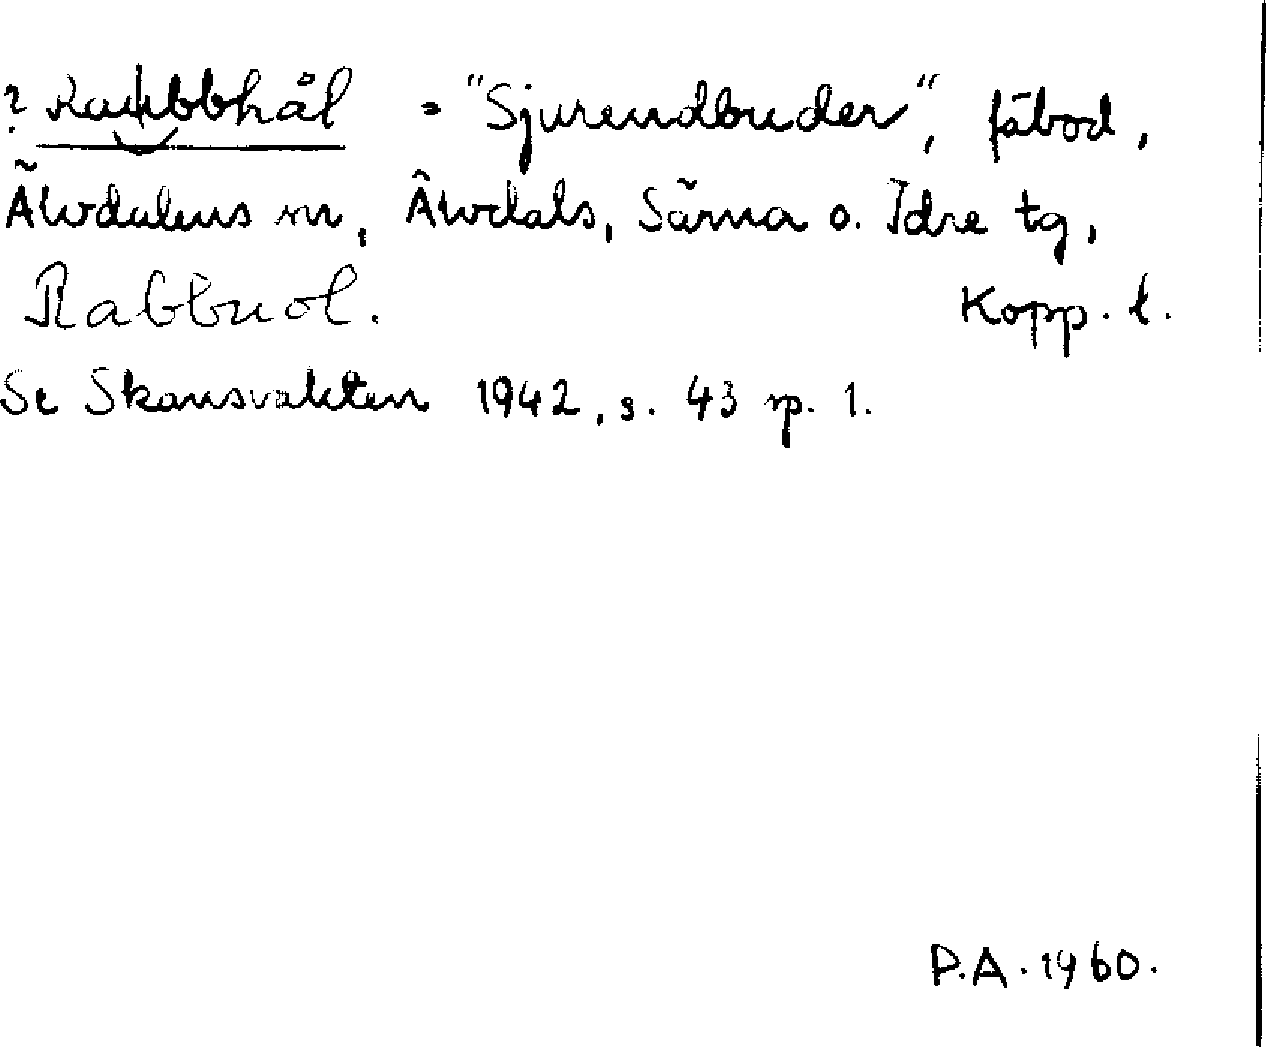 ? Rabbhål = "Sjurendbuder", fäbod,
Älvdalens sn, Älvdals, Särna o. Idre tg,
Rabbuol. Kopp. l.
Se Skansvakten 1942, s. 43 sp. 1.
P.A. 1960.